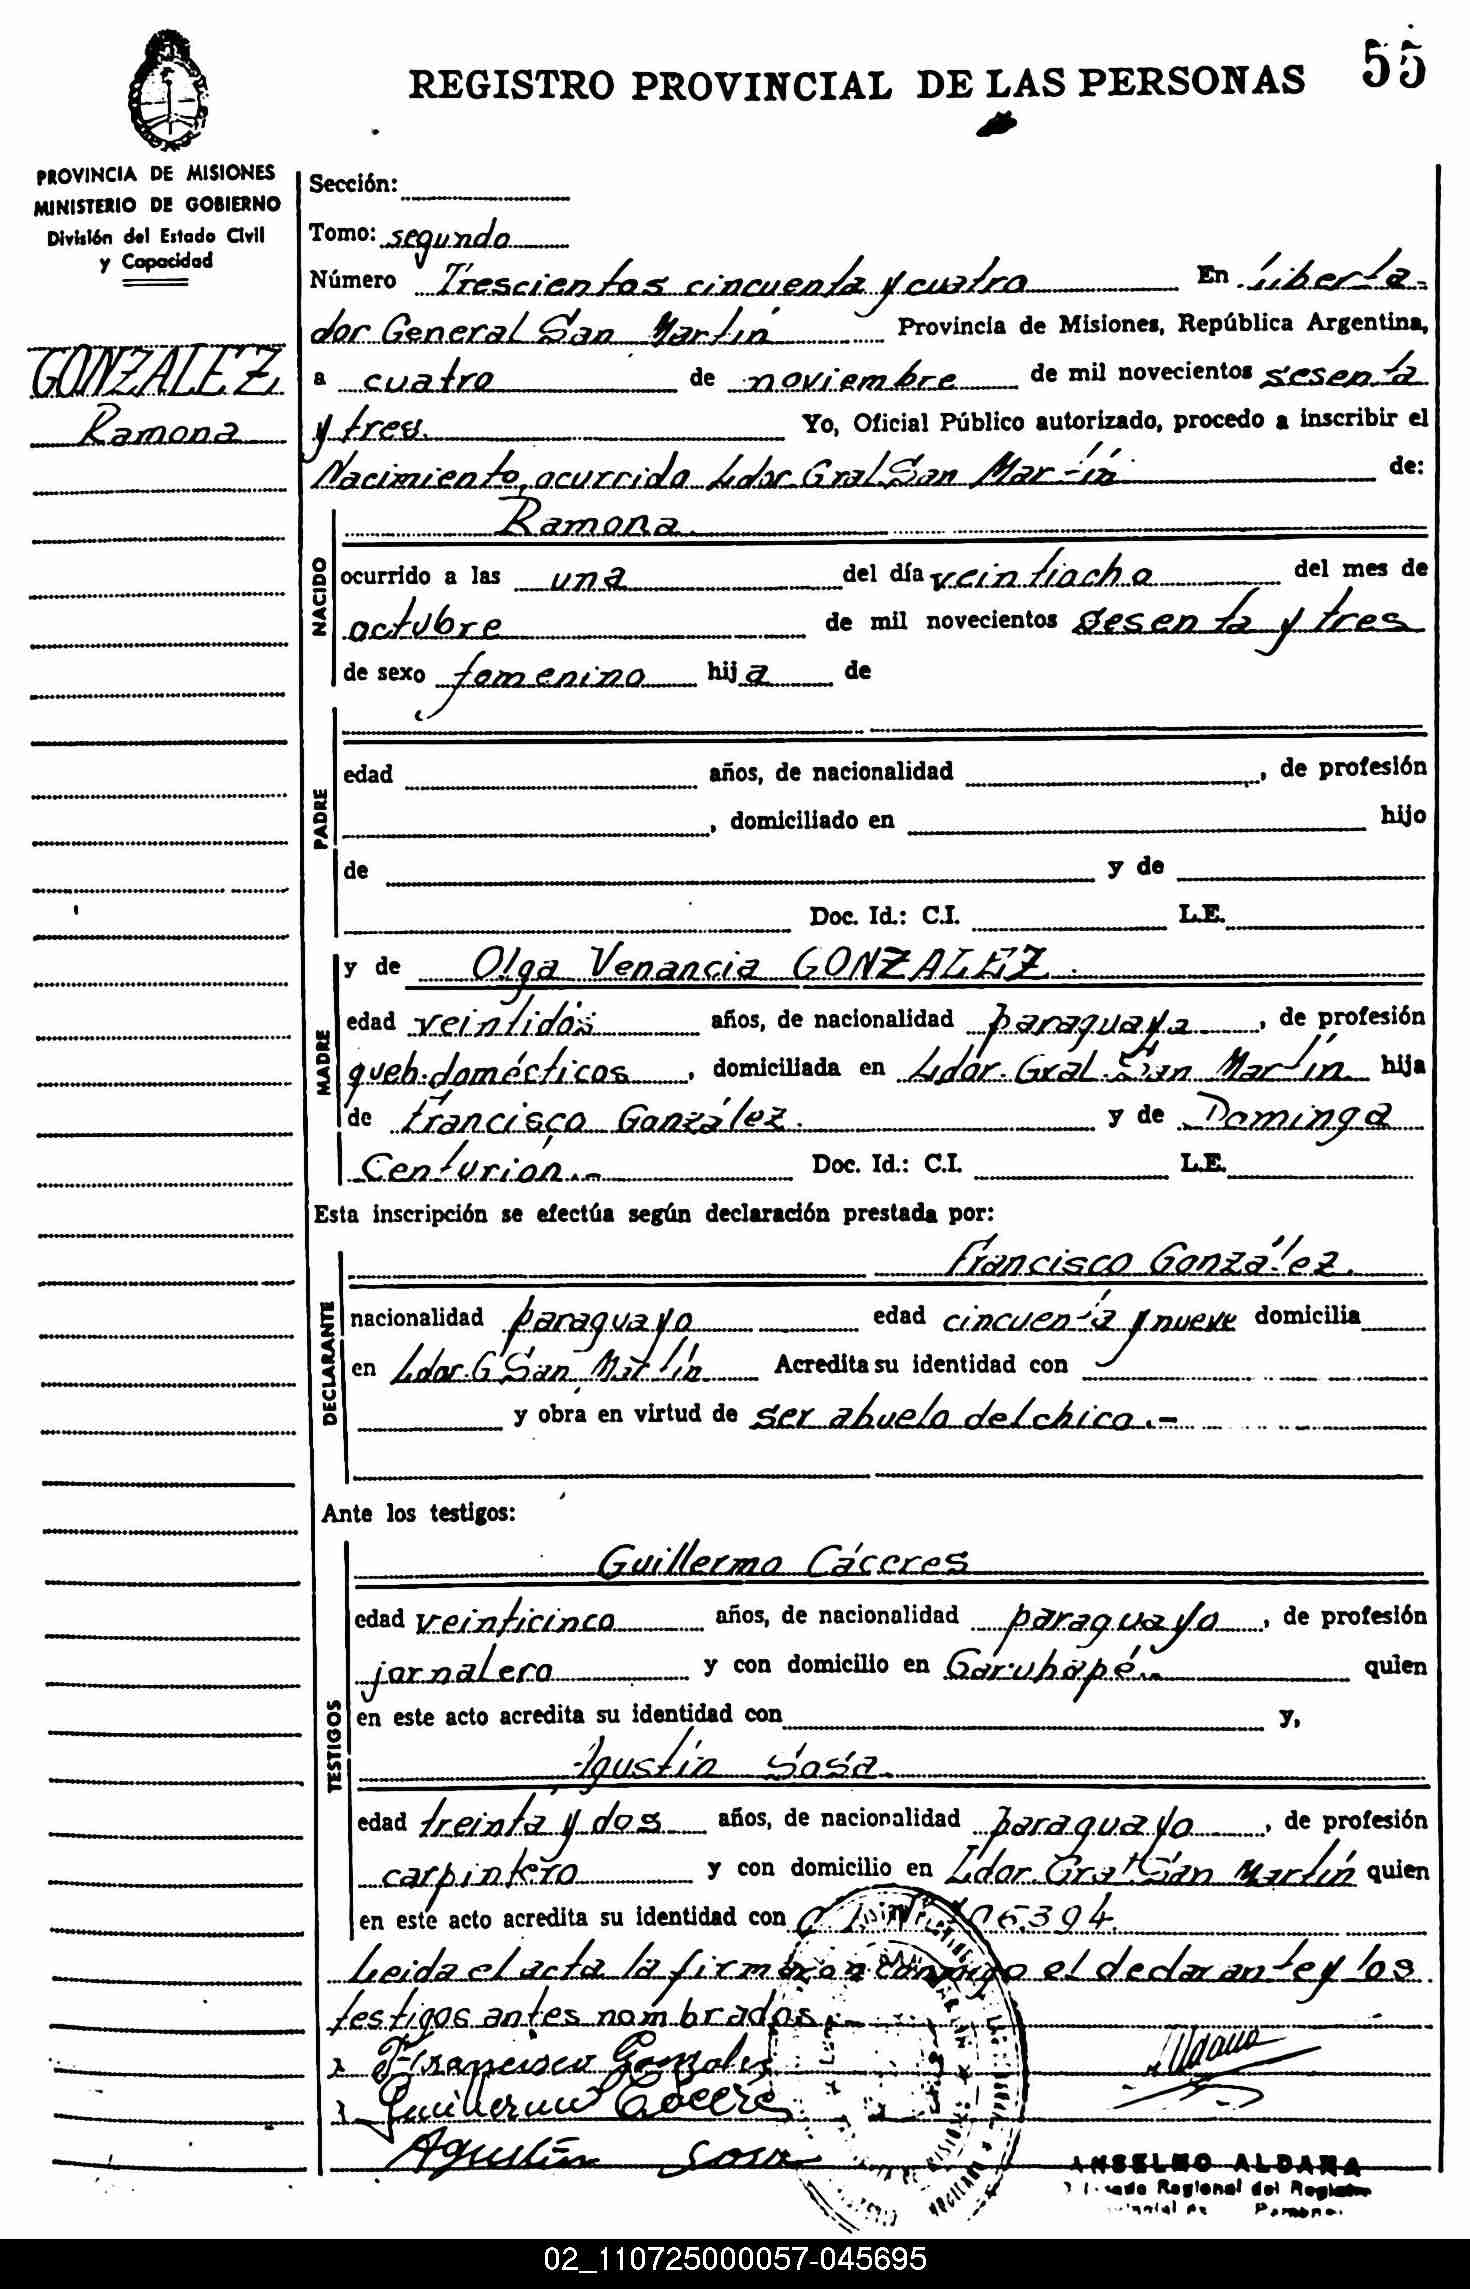 REGISTRO PROVINCIAL DE LAS PERSONAS 55
PROVINCIA DE MISIONES
MINISTERIO DE GOBIERNO
División del Estado Civil
y Capacidad
GONZALEZ
Ramona
Sección:
Tomo: segundo
Número Trescientos cincuenta y cuatro En Liberta-
dor General San Martín Provincia de Misiones, República Argentina,
a cuatro de noviembre de mil novecientos sesenta
y tres. Yo, Oficial Público autorizado, procedo a inscribir el
Nacimiento, ocurrido Ldor. Gral San Martín de:
NACIDO
Ramona.
ocurrido a las una del día veintiocho del mes de
octubre de mil novecientos sesenta y tres
de sexo femenino hija de
PADRE
edad años, de nacionalidad , de profesión
, domiciliado en hijo
de y de
Doc. Id.: C.I. L.E.
MADRE
y de Olga Venancia GONZALEZ.
edad veintidós años, de nacionalidad paraguaya , de profesión
queh. domésticos , domiciliada en Ldor. Gral. San Martín hija
de Francisco González. y de Dominga
Centurión.- Doc. Id.: C.I. L.E.
Esta inscripción se efectúa según declaración prestada por:
DECLARANTE
Francisco González.
nacionalidad paraguayo edad cincuenta y nueve domicilia
en Ldor. G San Martín Acredita su identidad con
y obra en virtud de ser abuelo del chico.-
Ante los testigos:
TESTIGOS
Guillermo Cáceres
edad veinticinco años, de nacionalidad paraguayo , de profesión
jornalero y con domicilio en Garuhapé.- quien
en este acto acredita su identidad con y,
Agustín Sosa.
edad treinta y dos años, de nacionalidad paraguayo , de profesión
carpintero y con domicilio en Ldor. Gral San Martín quien
en este acto acredita su identidad con 06.394.
Leida el acta la firmaron conmigo el declarante y los
testigos antes nombrados.-
Francisco Gonzales
Guillermo Cacere
Agustín Sosa
Aldana
ANSELMO ALDANA
Regional del Registro
02_110725000057-045695